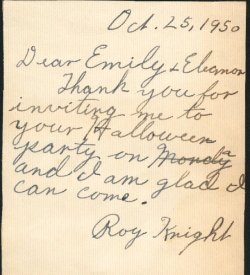 Oct. 25, 1950
Dear Emily & Eleanor
Thank you for
inviting me to
your Halloween
party on Monday
and I am glad I
can come.
Roy Knight